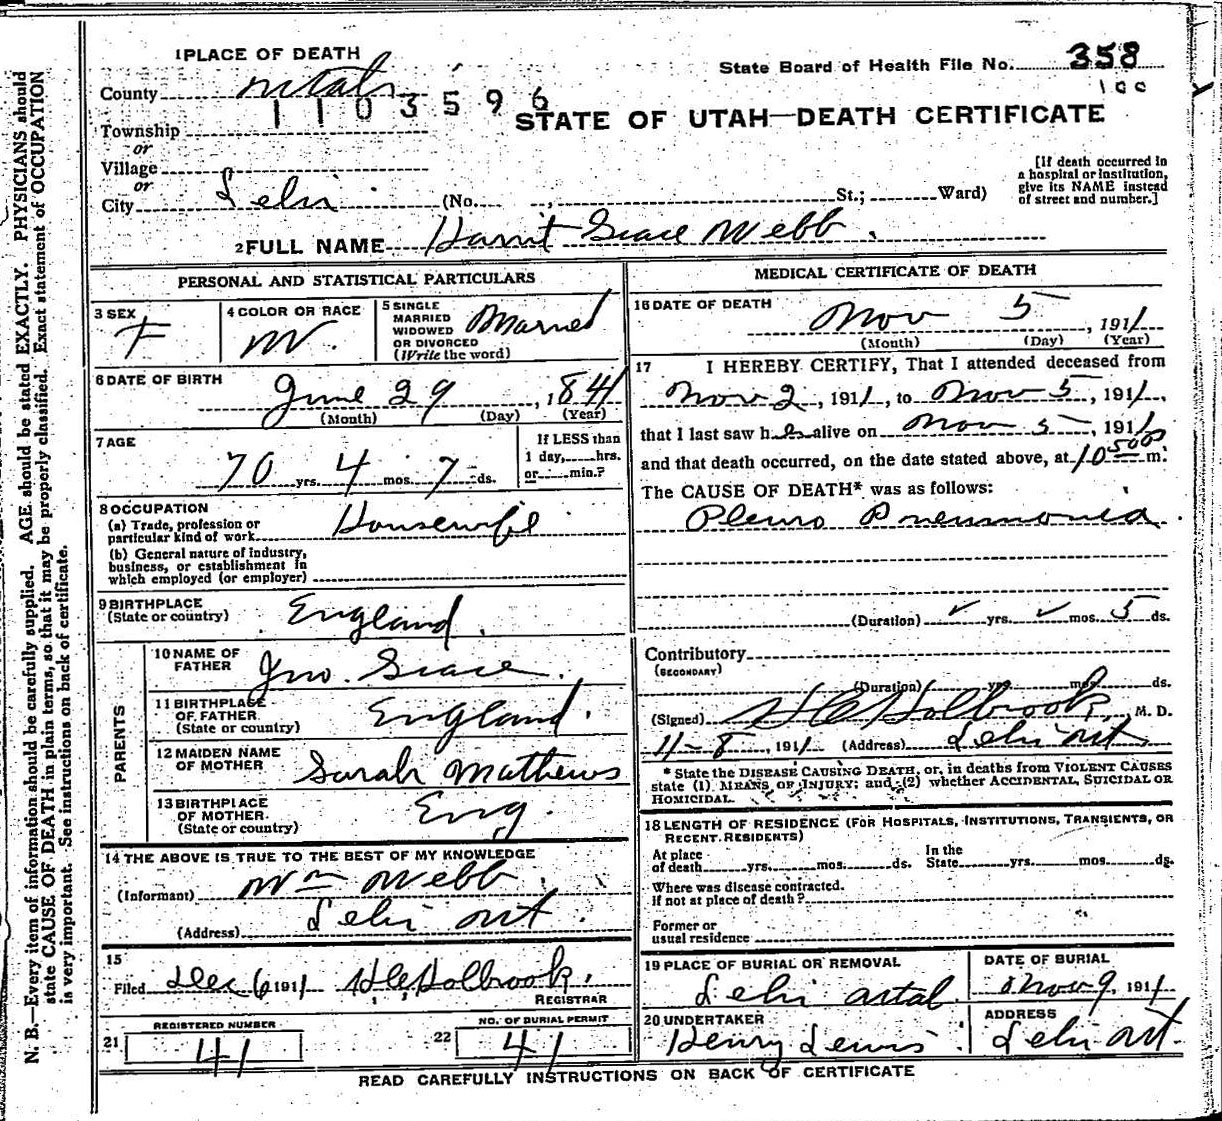 1 PLACE OF DEATH
State Board of Health File No. 358
100
County Utah
1103596
STATE OF UTAH—DEATH CERTIFICATE
Township
or
Village
or
City Lehi (No. , St.; Ward)
[If death occurred in
a hospital or institution,
give its NAME instead
of street and number.]
2 FULL NAME Harrit Grace Webb.
PERSONAL AND STATISTICAL PARTICULARS
3 SEX
F
4 COLOR OR RACE
W.
5 SINGLE
MARRIED
WIDOWED
OR DIVORCED
(Write the word)
Married
6 DATE OF BIRTH
June 29, 1841
(Month) (Day) (Year)
7 AGE
70 yrs. 4 mos. 7 ds.
If LESS than
1 day, hrs.
or min.?
8 OCCUPATION
(a) Trade, profession or
particular kind of work Housewife
(b) General nature of industry,
business, or establishment in
which employed (or employer)
9 BIRTHPLACE
(State or country) England.
PARENTS
10 NAME OF
FATHER Jno. Grace.
11 BIRTHPLACE
OF FATHER
(State or country) England.
12 MAIDEN NAME
OF MOTHER Sarah Mathews
13 BIRTHPLACE
OF MOTHER.
(State or country) Eng.
14 THE ABOVE IS TRUE TO THE BEST OF MY KNOWLEDGE
(Informant) Wm Webb.
(Address) Lehi Ut.
15
Filed Dec 6 1911 Holbrook.
REGISTRAR
21 REGISTERED NUMBER
41
22 NO. OF BURIAL PERMIT
41
MEDICAL CERTIFICATE OF DEATH
16 DATE OF DEATH
Nov 5, 1911
(Month) (Day) (Year)
17 I HEREBY CERTIFY, That I attended deceased from
Nov 2, 1911, to Nov 5, 1911,
that I last saw h alive on Nov 5, 1911
and that death occurred, on the date stated above, at 10 m.
The CAUSE OF DEATH* was as follows:
Pleuro Pneumonia.
(Duration) yrs. mos. 5 ds.
Contributory
(SECONDARY)
(Duration) yrs. mos. ds.
(Signed) Holbrook, M. D.
11-8, 1911 (Address) Lehi Ut.
* State the DISEASE CAUSING DEATH, or, in deaths from VIOLENT CAUSES
state (1) MEANS OF INJURY; and (2) whether ACCIDENTAL, SUICIDAL OR
HOMICIDAL.
18 LENGTH OF RESIDENCE (FOR HOSPITALS, INSTITUTIONS, TRANSIENTS, OR
RECENT RESIDENTS)
At place
of death yrs. mos. ds.
In the
State yrs. mos. ds.
Where was disease contracted.
if not at place of death?
Former or
usual residence
19 PLACE OF BURIAL OR REMOVAL
Lehi Utah
DATE OF BURIAL
Nov 9, 1911
20 UNDERTAKER
Henry Lewis
ADDRESS
Lehi Ut.
READ CAREFULLY INSTRUCTIONS ON BACK OF CERTIFICATE
N. B.—Every item of information should be carefully supplied. AGE should be stated EXACTLY. PHYSICIANS should
state CAUSE OF DEATH in plain terms, so that it may be properly classified. Exact statement of OCCUPATION
is very important. See instructions on back of certificate.